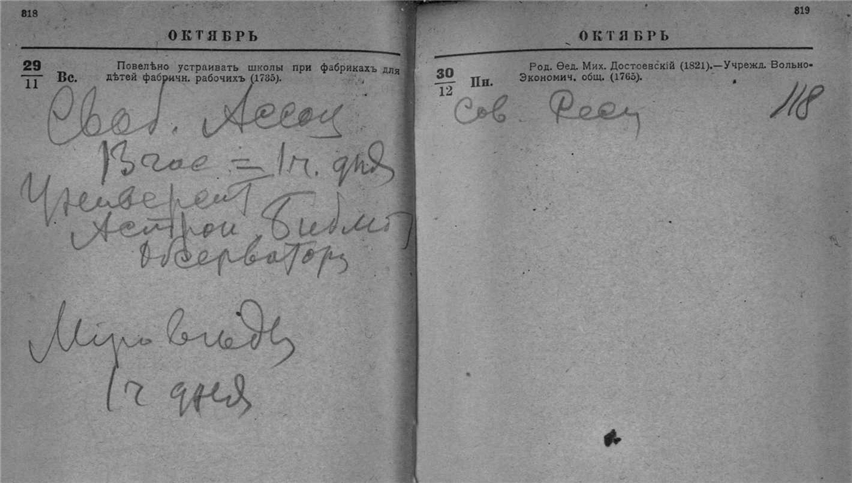 318
ОКТЯБРЬ
29/11 Вс. Повелѣно устраивать школы при фабрикахъ для
дѣтей фабричн. рабочихъ (1735).
Своб. Ассоц
13 час = 1 ч. дня
Университ
Астрон. Библиот
Обсерватор
Міровѣд
1 ч дня
319
ОКТЯБРЬ
30/12 Пн. Род. Ѳед. Мих. Достоевскій (1821).—Учрежд. Вольно-
Экономич. общ. (1765).
Сов
118